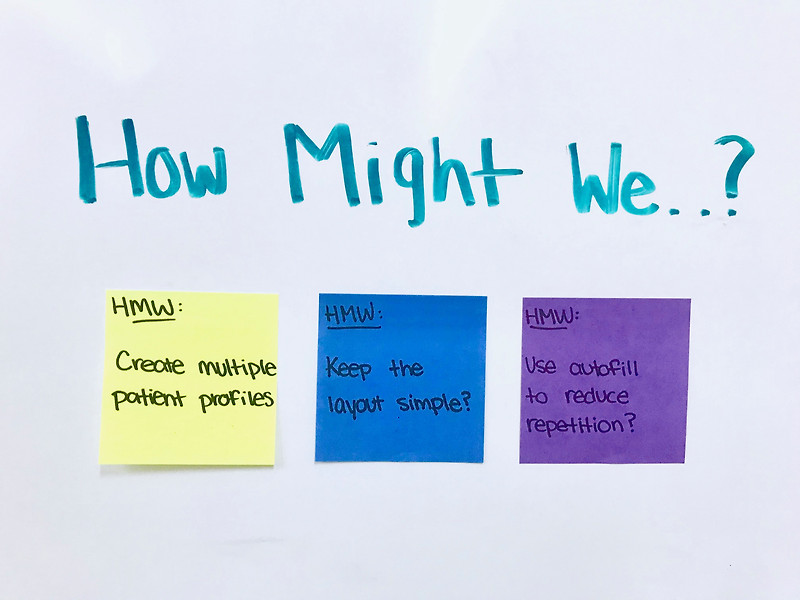 How Might We...?
HMW:
Create multiple
patient profiles
HMW:
Keep the
layout simple?
HMW:
Use autofill
to reduce
repetition?